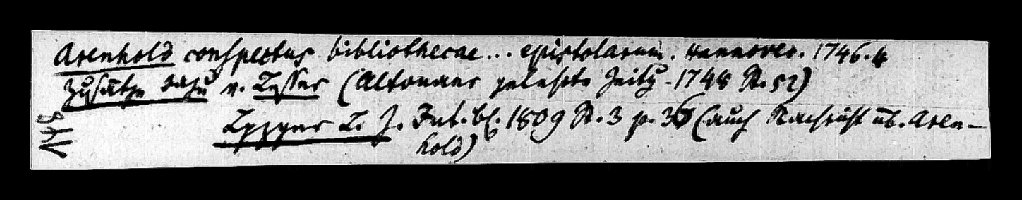 Arenhold conspectus bibliothecae... epistolarum. Hannover. 1746. 4
Zusätze dazu v. Lesser (Altonaer gelehrte Zeitg. 1748 St. 52)
L. Z. Int. bl. 1809 St. 3 p. 36 (auch Nachricht üb. Aren-
hold)